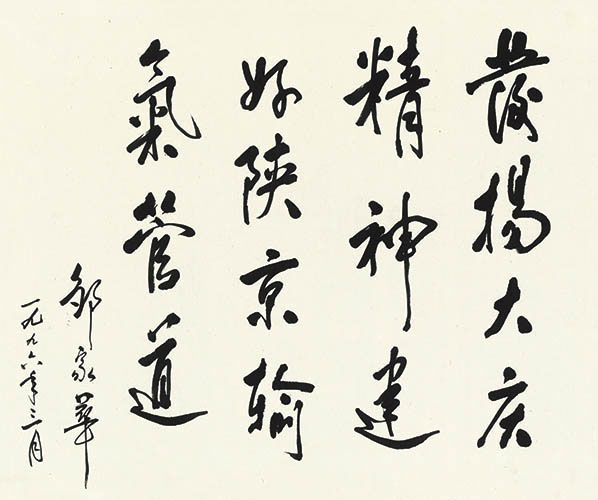 發揚大庆
精神建
好陕京輸
氣管道
邹家華
一九九六年三月